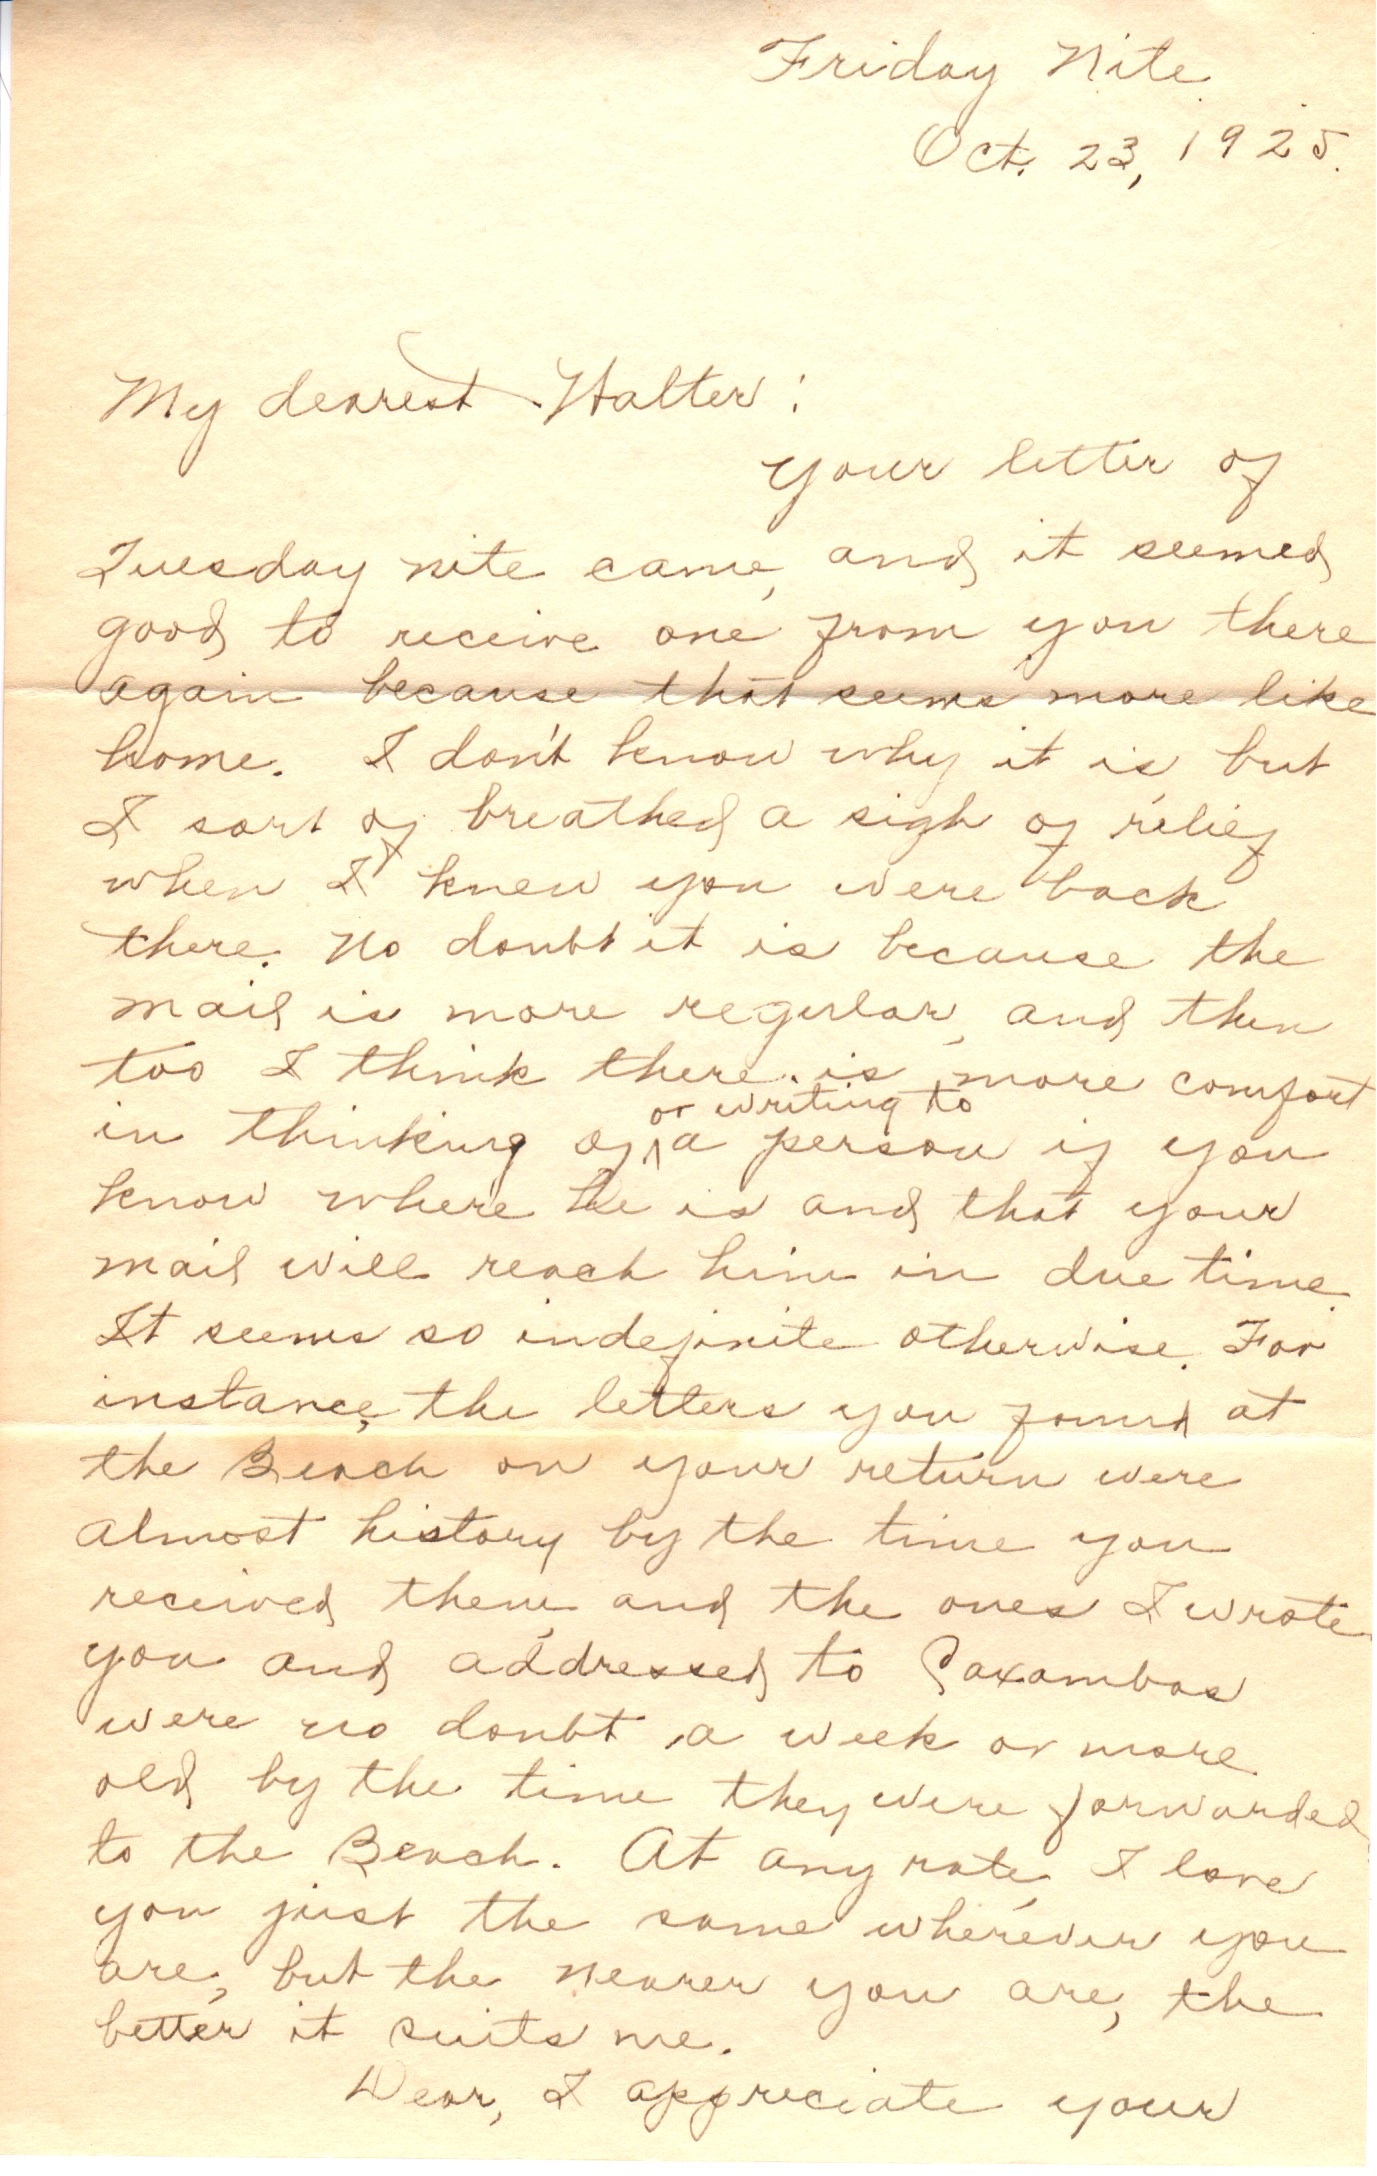 Friday Nite
Oct. 23, 1925.
My dearest Walter:
Your letter of
Tuesday nite came, and it seemed
good to receive one from you there
again because that seems more like
home. I don't know why it is but
I sort of breathed a sigh of relief
when I knew you were back
there. No doubt it is because the
mail is more regular, and then
too I think there is more comfort
or writing to
in thinking of a person if you
know where he is and that your
mail will reach him in due time.
It seems so indefinite otherwise. For
instance, the letters you found at
the Beach on your return were
almost history by the time you
received them, and the ones I wrote
you and addressed to Caxambas
were no doubt a week or more
old by the time they were forwarded
to the Beach. At any rate, I love
you just the same wherever you
are, but the nearer you are, the
better it suits me.
Dear, I appreciate your